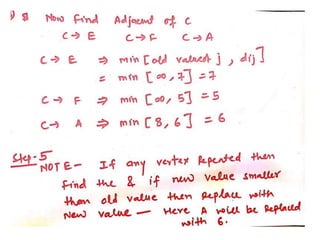 Now Find Adjacent of C
C → E C → F C → A
C → E ⇒ min [old valueof j, dij]
= min [∞, 7] = 7
C → F ⇒ min [∞, 5] = 5
C → A ⇒ min [8, 6] = 6
Step-5
NOTE - If any vertex Repented then
find the & if new value smaller
than old value then Replace with
New value — Here A will be Replaced
with 6.